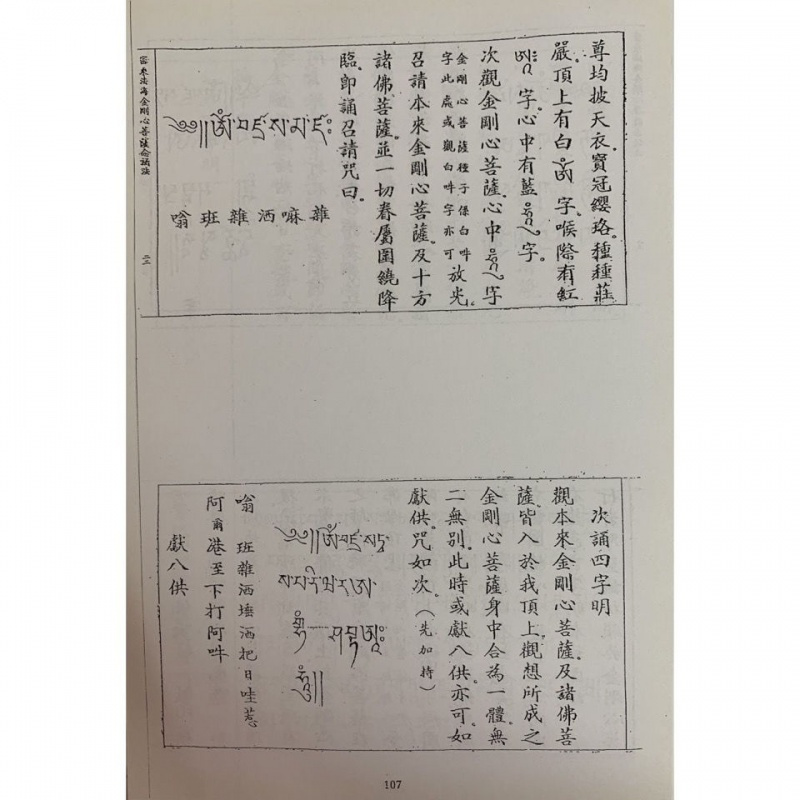 尊均披天衣。寶冠纓珞。種種莊
嚴。頂上有白 ཨོཾ 字。喉際有紅
ཨཱཿ 字。心中有藍 ཧཱུྃ 字。
次觀金剛心菩薩。心中 ཧཱུྃ 字
金剛心菩薩種子係白吽
字此處或觀白吽字亦可
放光。
召請本來金剛心菩薩。及十方
諸佛菩薩。並一切眷屬圍繞降
臨。即誦召請咒曰。
༄༅།།ཨོཾ་བཛྲ་ས་མཱ་ཛཿ
嗡 班 雜 洒 嘛 雜
法海金剛心菩薩念誦法
次誦四字明
觀本來金剛心菩薩。及諸佛菩
薩。皆入於我頂上。觀想所成之
金剛心菩薩身中合為一體。無
二無別。此時或獻八供亦可。如
獻供。咒如次。(先加持)
༄༅།།ཨོཾ་བཛྲ་སཏྭ་
ས་པ་རི་ཝཱ་ར་
ཤབྡ་ཨཱཿ
ཧཱུྃ།།
嗡 班雜洒埵洒把日哇惹
阿爾港至下打阿吽
獻八供
107